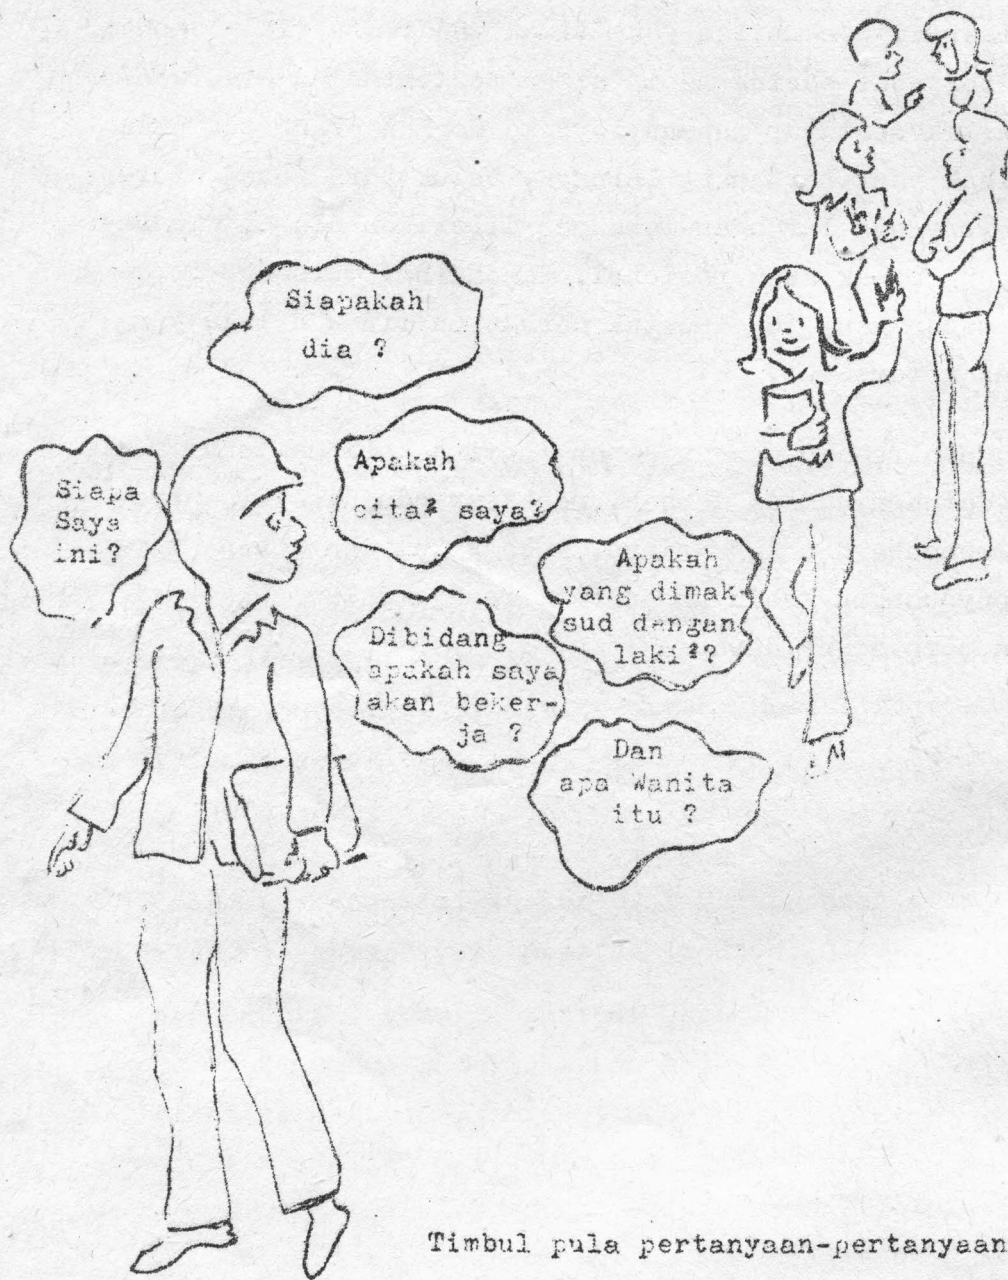 Siapakah
dia ?
Siapa
Saya
ini?
Apakah
cita² saya?
Apakah
yang dimak-
sud dengan
laki²?
Dibidang
apakah saya
akan beker-
ja ?
Dan
apa Wanita
itu ?
Timbul pula pertanyaan-pertanyaan